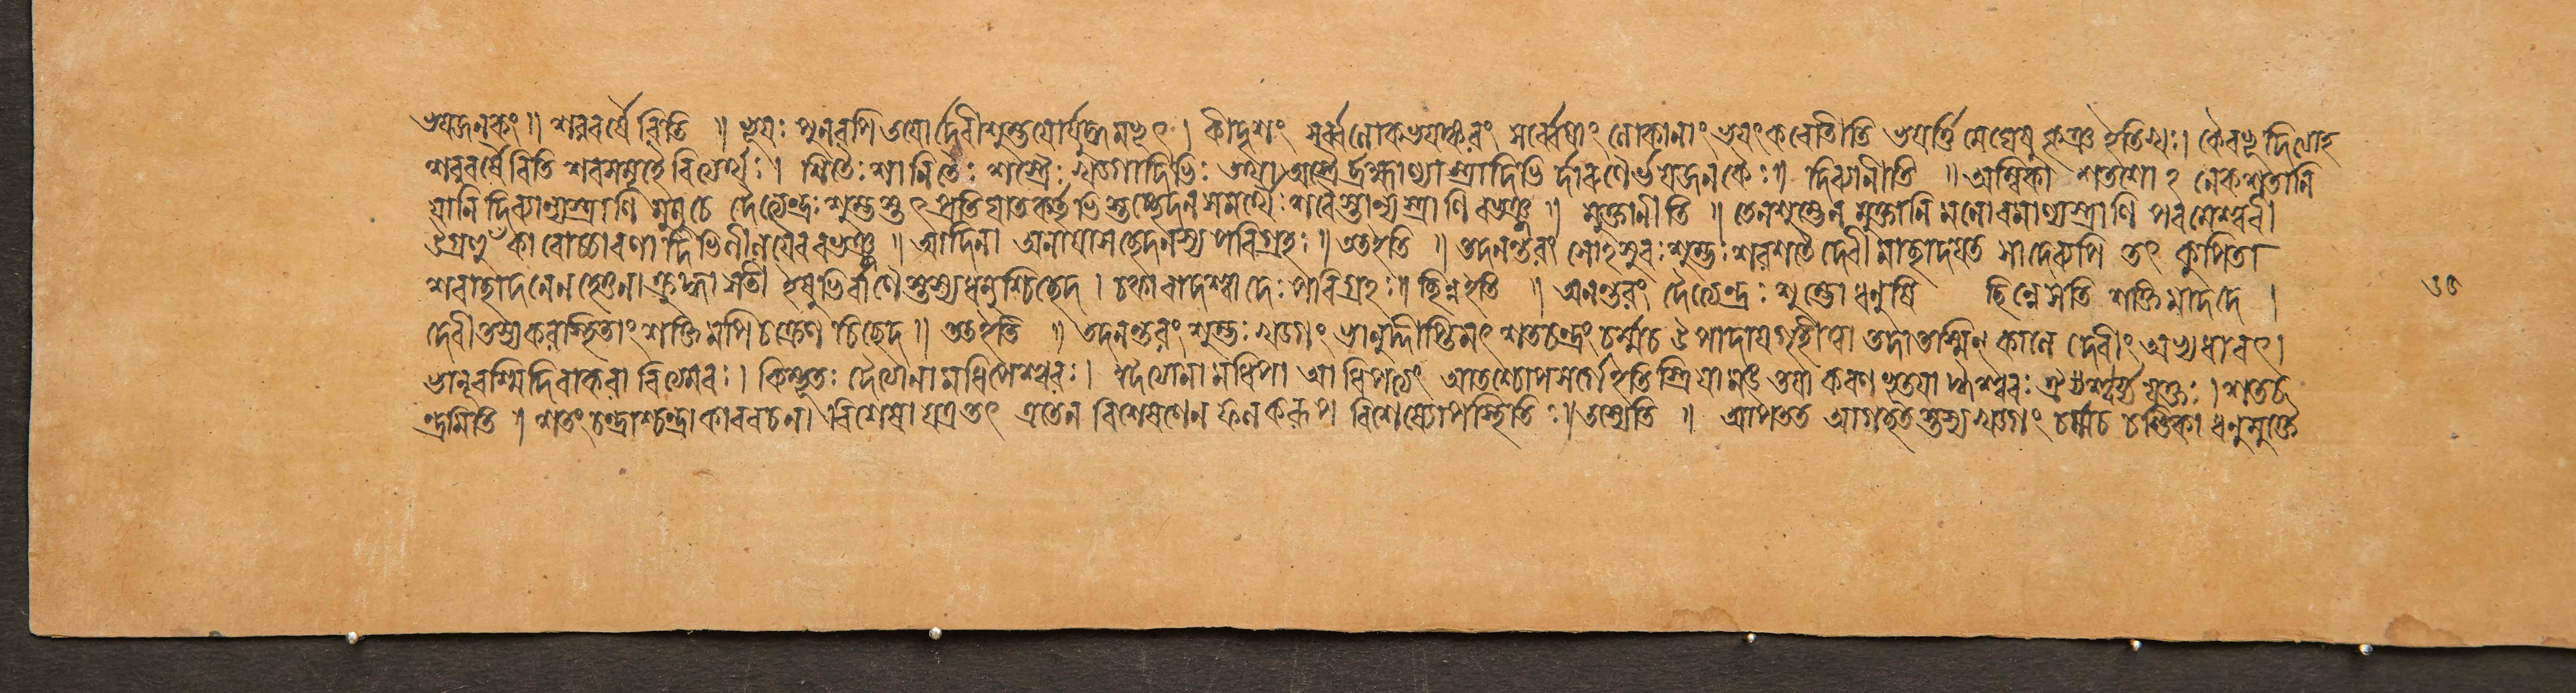 ভয়জনকং ॥ শরবর্ষৈ রিতি ॥ ভূয়ঃ পুনরপি তয়ো র্দেবীশুম্ভয়োর্যুদ্ধমভূৎ । কীদৃশং সর্ব্বলোকভয়ঙ্করং সর্ব্বেষাং লোকানাং ভয়ং করোতীতি ভয়র্ত্তি মেঘেষু কৃঞ্চ ইতিখঃ। কৈরভূ দিত্যাহ
শরবর্ষৈ রিতি শরসমূহৈ রিত্যর্থঃ । শিতৈঃ শানিতৈঃ শস্ত্রৈঃ খড়্গাদিভিঃ তথা অস্ত্রৈ র্ব্রহ্মাণ্যাস্ত্রাদিভি র্দারুণৈর্ভয়জনকৈঃ ॥ দিব্যানীতি ॥ অম্বিকা শতশো ঽ নেকশতানি
যানি দিব্যান্যস্ত্রাণি মুমুচে দৈত্যেন্দ্রঃ শুম্ভস্তৎ প্রতিঘাতকর্তৃভি স্তচ্ছেদনসমর্থৈঃ শরৈস্তান্যস্ত্রাণি বভঞ্জ ॥ মুক্তানীতি ॥ তেন শুম্ভেন মুক্তানি মনোরমাণ্যস্ত্রাণি পরমেশ্বরী
উগ্রহুঁ কারোচ্চারণা দিভির্লীলয়ৈব বভঞ্জ ॥ আদিনা অনায়াসচ্ছেদনস্য পরিগ্রহঃ ॥ তত ইতি ॥ তদনন্তরং সোঽসুরঃ শুম্ভঃ শরশতৈ র্দেবী মাচ্ছাদয়ত সা দেব্যপি তৎ কুপিতা
শরাচ্ছাদনেন হেতুনা ক্রুদ্ধা সতী ইষুভির্বাণৈ স্তস্য ধনুশ্চিচ্ছেদ । চকারাদশ্বাদেঃ পরিগ্রহঃ ॥ ছিন্ন ইতি ॥ অনন্তরং দৈত্যেন্দ্রঃ শুম্ভো ধনুষি ছিন্নে সতি শক্তি মাদদে ।
দেবী তস্য করস্থিতাং শক্তি মপি চক্রেণ চিচ্ছেদ ॥ তত ইতি ॥ তদনন্তরং শুম্ভঃ খড়্গং ভানুদ্দীপ্তিমৎ শতচন্দ্রং চর্ম্ম চ উপাদায় গৃহীত্বা তদা তস্মিন্ কালে দেবীং অভ্যধাবৎ ।
ভানূ রশ্মিদিবাকরা বিত্যমরঃ । কিম্ভূতঃ দৈত্যানামধিপেশ্বরঃ ।
ন্দ্রমিতি ॥ শতং চন্দ্রাশ্চন্দ্রাকাররচনা বিশেষা যত্র তৎ এতেন বিশেষণেন ফলকরূপ বিশেষ্যোপস্থিতিঃ ॥ তস্যেতি ॥ আপতত আগচ্ছত স্তস্য খড়্গং চর্ম্ম চ চণ্ডিকা ধনুর্মুক্তৈ